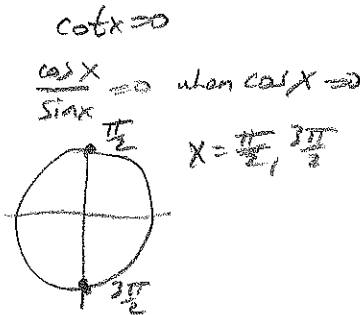 cotx=0
cosx/sinx =0 when cosx=0
π/2
x=π/2, 3π/2
3π/2